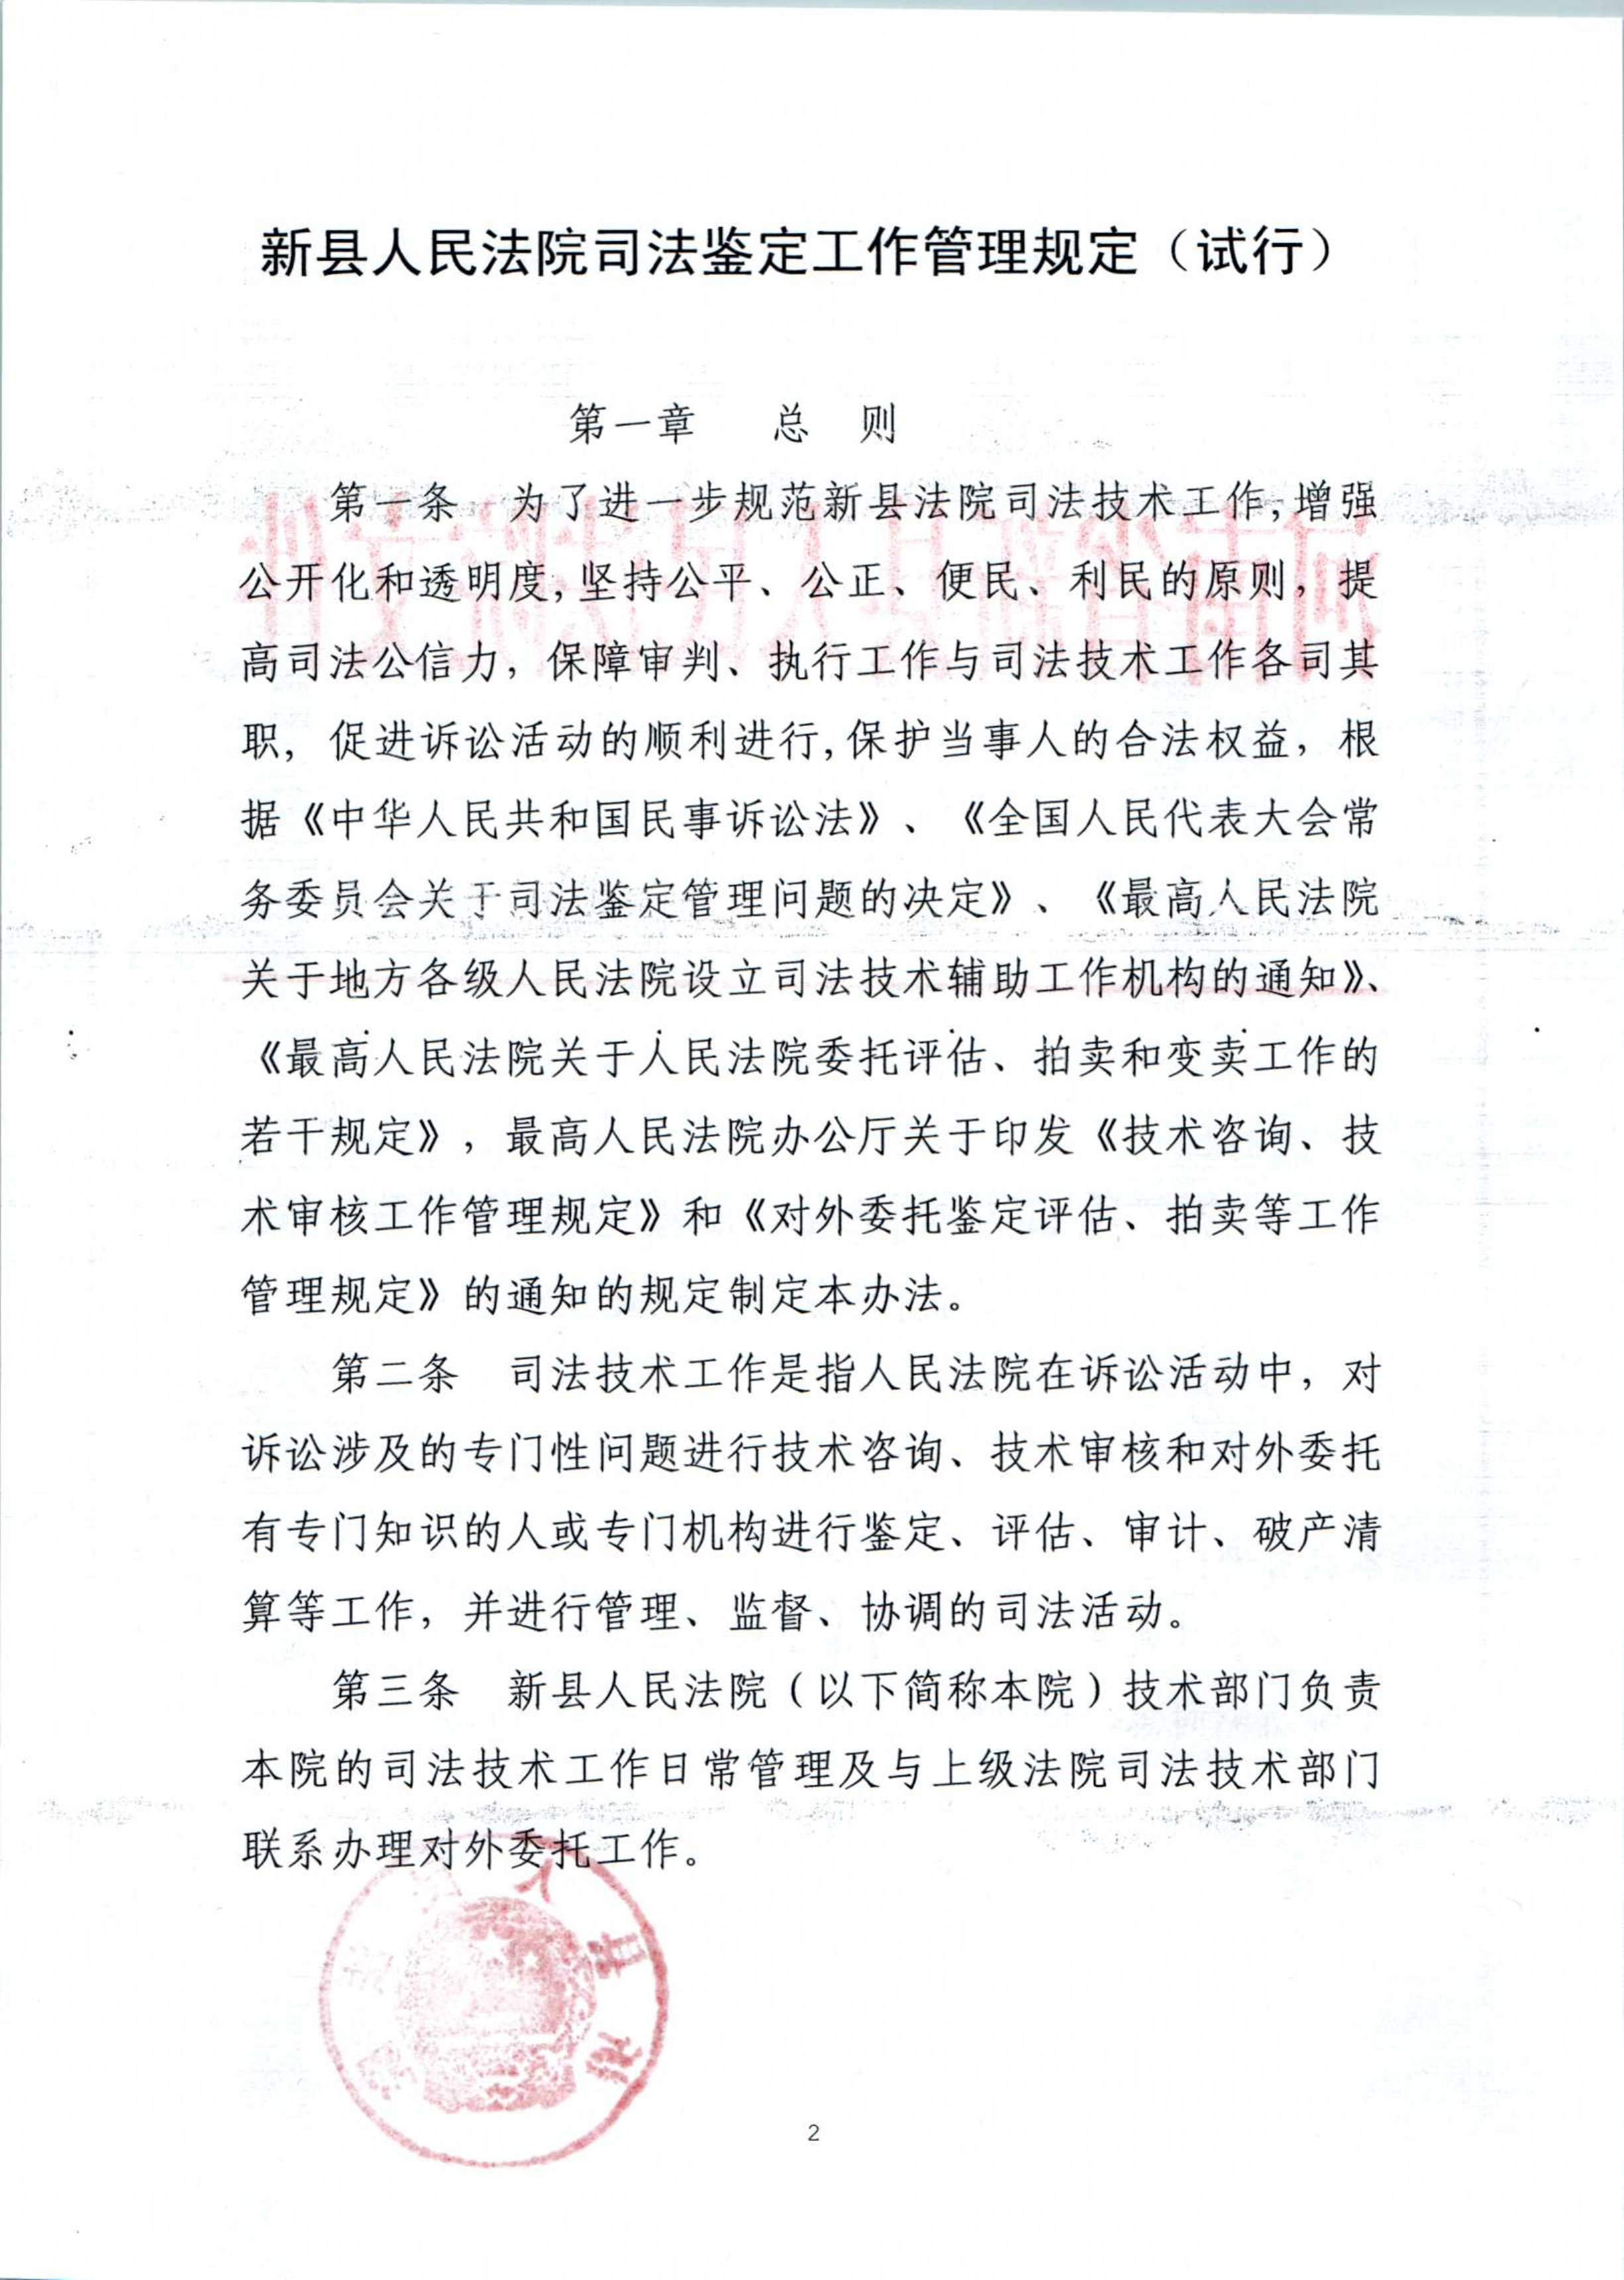 新县人民法院司法鉴定工作管理规定（试行）
第一章 总 则
第一条 为了进一步规范新县法院司法技术工作,增强
公开化和透明度,坚持公平、公正、便民、利民的原则，提
高司法公信力，保障审判、执行工作与司法技术工作各司其
职，促进诉讼活动的顺利进行,保护当事人的合法权益，根
据《中华人民共和国民事诉讼法》、《全国人民代表大会常
务委员会关于司法鉴定管理问题的决定》、《最高人民法院
关于地方各级人民法院设立司法技术辅助工作机构的通知》、
《最高人民法院关于人民法院委托评估、拍卖和变卖工作的
若干规定》，最高人民法院办公厅关于印发《技术咨询、技
术审核工作管理规定》和《对外委托鉴定评估、拍卖等工作
管理规定》的通知的规定制定本办法。
第二条 司法技术工作是指人民法院在诉讼活动中，对
诉讼涉及的专门性问题进行技术咨询、技术审核和对外委托
有专门知识的人或专门机构进行鉴定、评估、审计、破产清
算等工作，并进行管理、监督、协调的司法活动。
第三条 新县人民法院（以下简称本院）技术部门负责
本院的司法技术工作日常管理及与上级法院司法技术部门
联系办理对外委托工作。
2